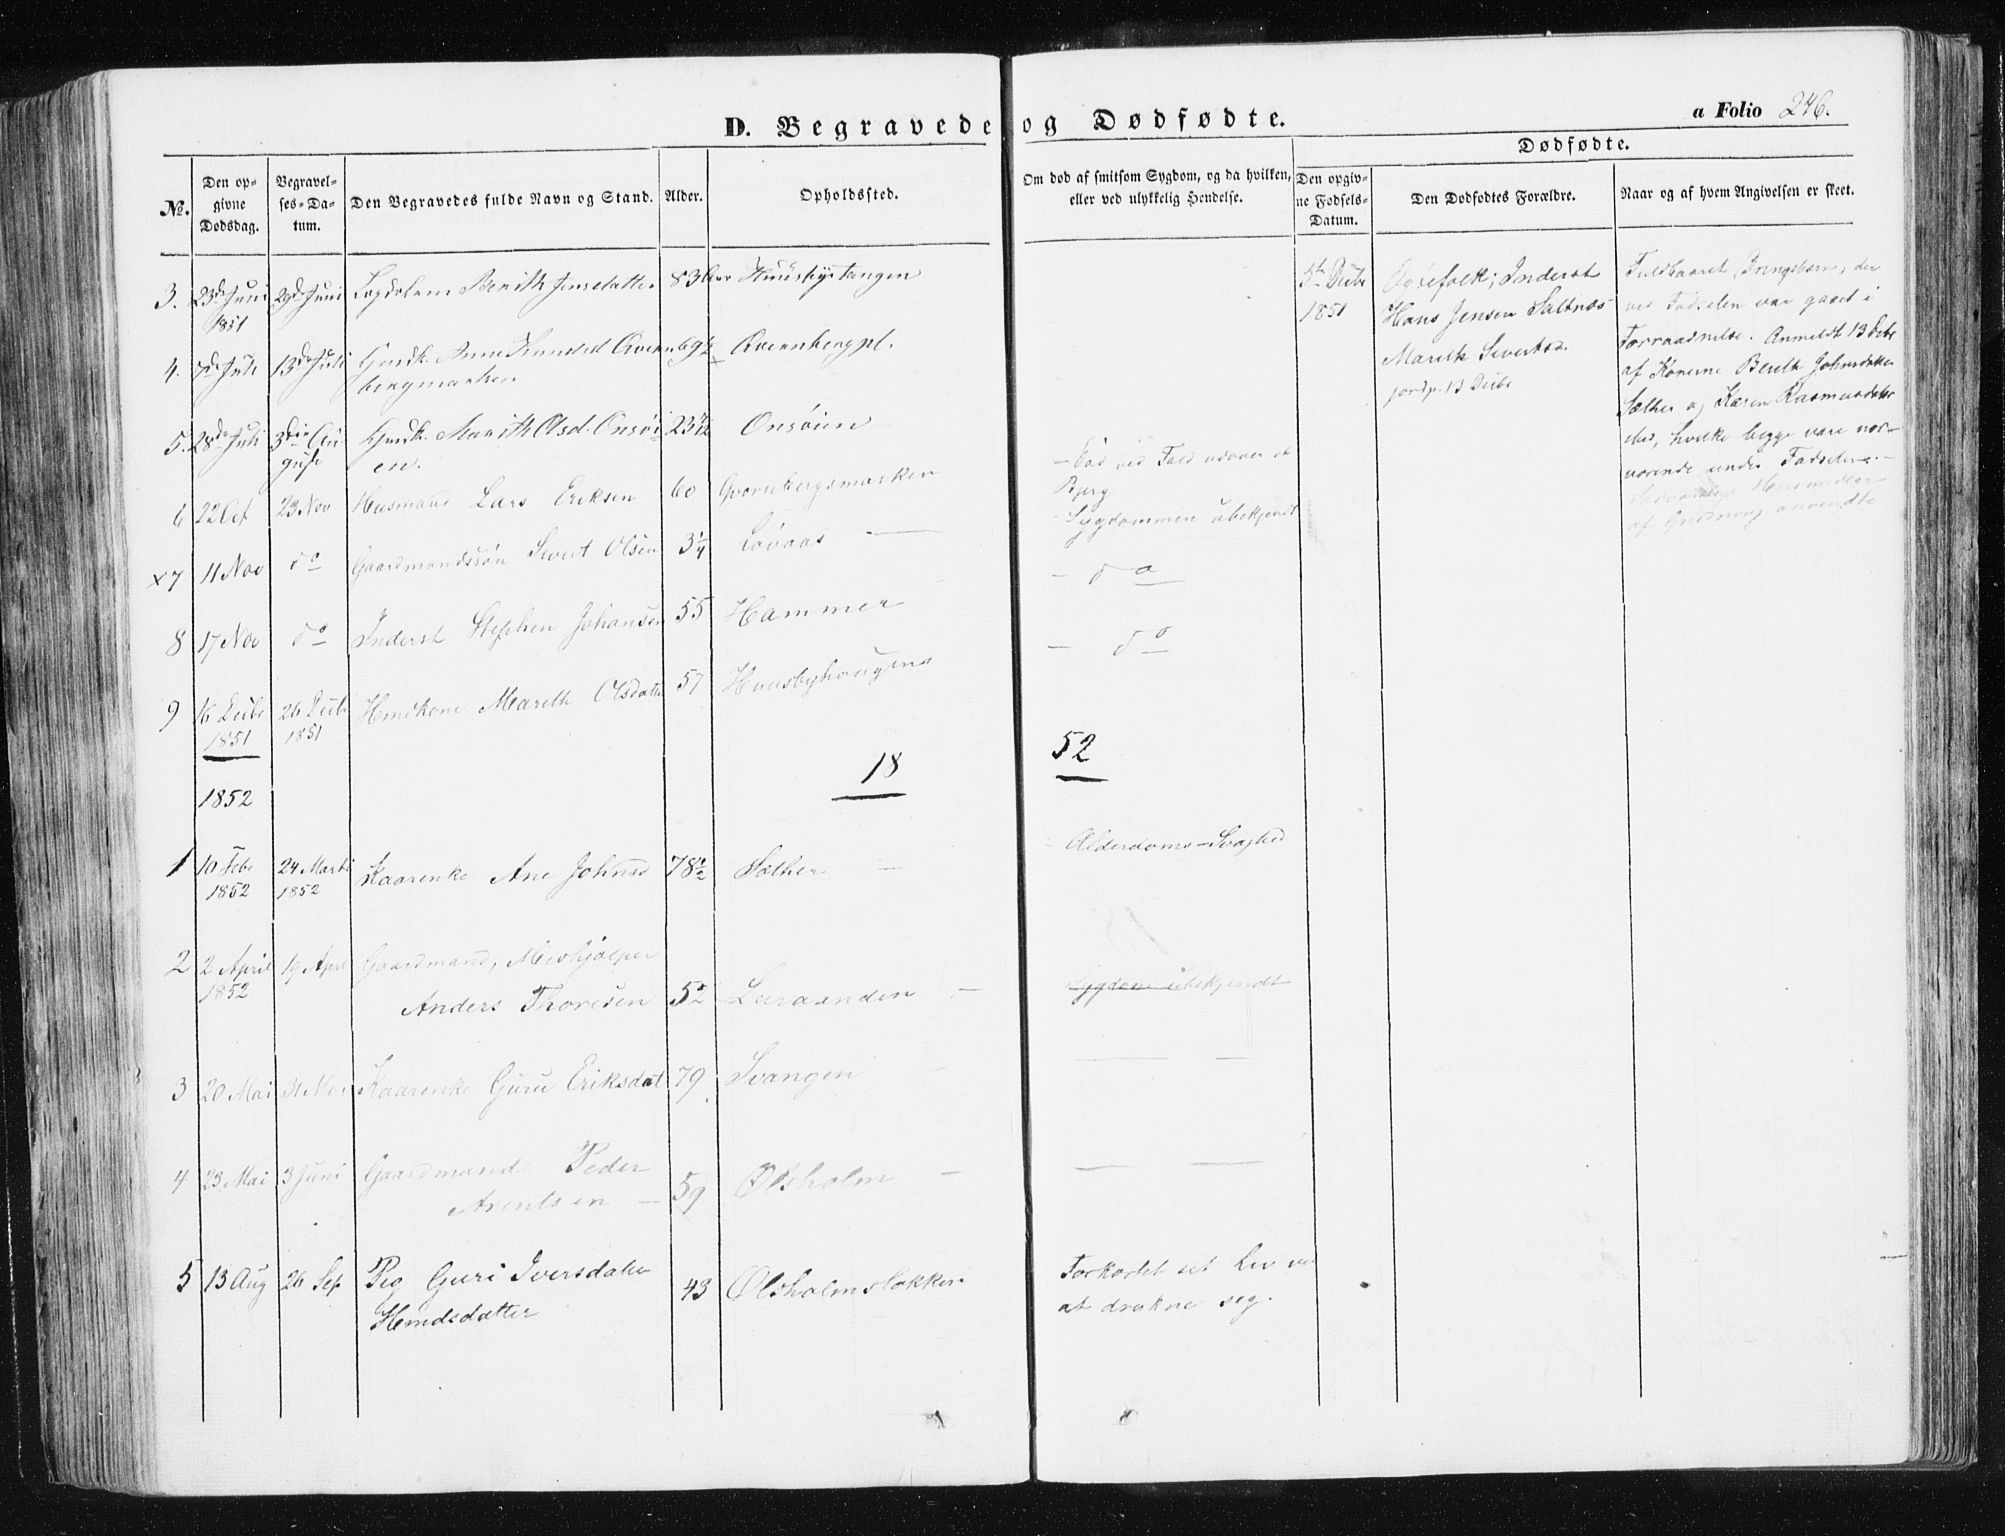 D. Begravede og Dødfødte.
a Folio 246.
№.
Den opgivne Dødsdag.
Begravelses-Datum.
Den Begravedes fulde Navn og Stand.
Alder.
Opholdssted.
Om død af smitsom Sygdom, og da hvilken, eller ved ulykkelig Hendelse.
Dødfødte.
Den opgivne Fødsels-Datum.
Den Dødfødtes Forældre.
Naar og af hvem Angivelsen er skeet.
3. 23de Juni 29de Juni Berith Jensdatter 83
1851
4. 7de Juli 13de Juli Anne 69½ Qvernbergpl.
5. 28de Juli 3die Au- Marith Olsd. Onsöi- 23 Onsöien
gust en.
6 22 Oct 23 Nov Husmand Lars Eriksen 60 Qvernbergsmarken – Död ved Fald udover et
Bjerg
x7 11 Nov do Gaardmandssön Sivert Olsen 3¼ Lövaas – – Sygdommen ubekjendt
8 17 Nov do Inderst Stephen Johansen 55 Hammer – do
9 16 Decbr 26 Decbr Huuskone Mareth Olsdatter 57 Huusbyhaugen – do
1851 1851
18 52
1852
1 10 Febr 24 Marti Kaarenke Ane Johnsd 78 Sæther – Alderdoms-Svaghed
1852 1852
2 2 April 19 April Gaardmand, Medhjælper
1852 Anders Thoresen 52 Leeraanden – Sygdom ubekjendt
3 20 Mai 31 Mai Kaarenke Guru Eriksdat 79 Svangen
4 23 Mai 3 Juni Gaardmand Peder
Arentsen – 59 Ølsholm –
5 13 Aug 26 Sep Pig Guri Iversdatter 43 Ølsholmsløkken Forkortet sit Liv ved
Hemdsdatter at drukne sig.
5te Decbr Ægtefolk; Inderst
1851 Hans Jensen Saltnæs
Mareth Sivertsd.
jordp. 13 Decbr
Fuldbaaret Drengebarn, der
ved Fødselen var gaaet i
Forraadnelse. Anmeldt 13 Decbr
af Konerne Berith Johnsdatter
Sæther og Karen Rasmusdatter
ibd, hvilke begge vare nær-
værende under Fødselen. –